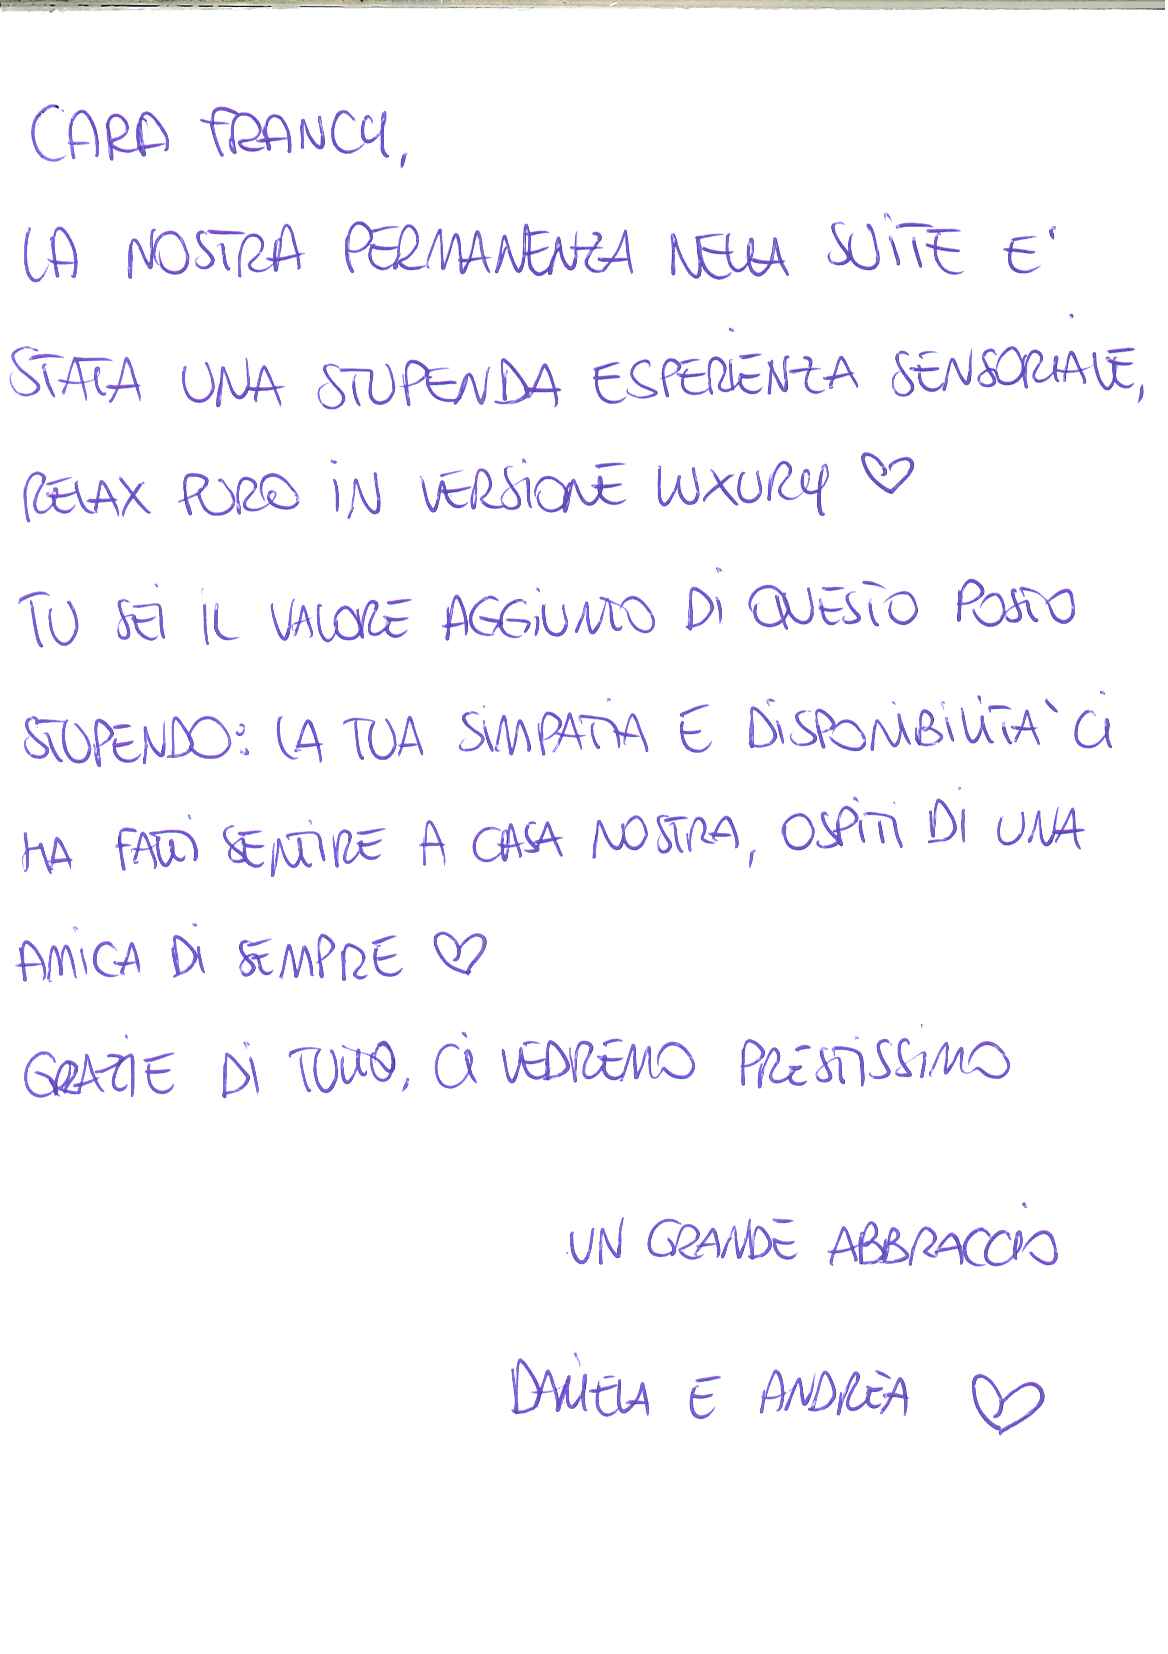 CARA FRANCY,
LA NOSTRA PERMANENZA NELLA SUITE E'
STATA UNA STUPENDA ESPERIENZA SENSORIALE,
RELAX PURO IN VERSIONE LUXURY ♡
TU SEI IL VALORE AGGIUNTO DI QUESTO POSTO
STUPENDO: LA TUA SIMPATIA E DISPONIBILITA' CI
HA FATTI SENTIRE A CASA NOSTRA, OSPITI DI UNA
AMICA DI SEMPRE ♡
GRAZIE DI TUTTO, CI VEDREMO PRESTISSIMO
UN GRANDE ABBRACCIO
DANIELA E ANDREA ♡